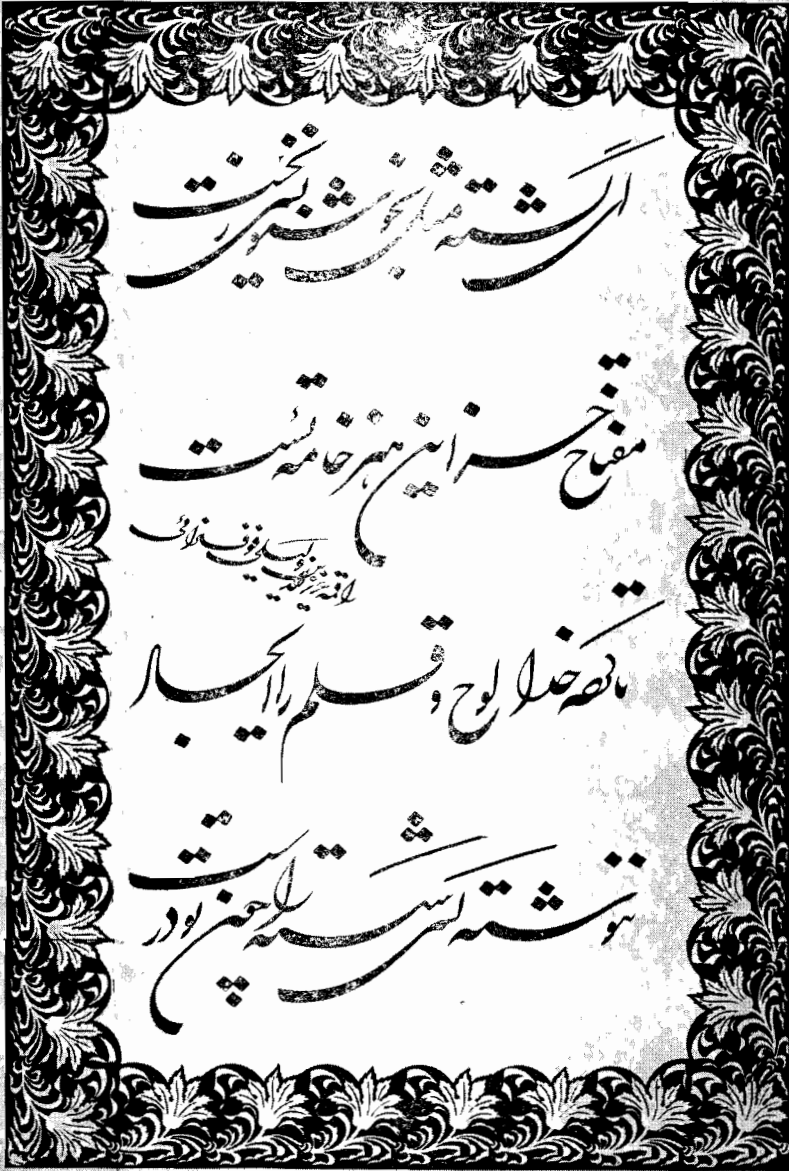 ای گشته مثل بخوشنویسی ز نخست
مفتاح خزاین هنر خامه تست
وکیلی فوفلزائی
تا کرده خدا لوح و قلم را ایجاد
ننوشته کسی شکسته را چون تو درست